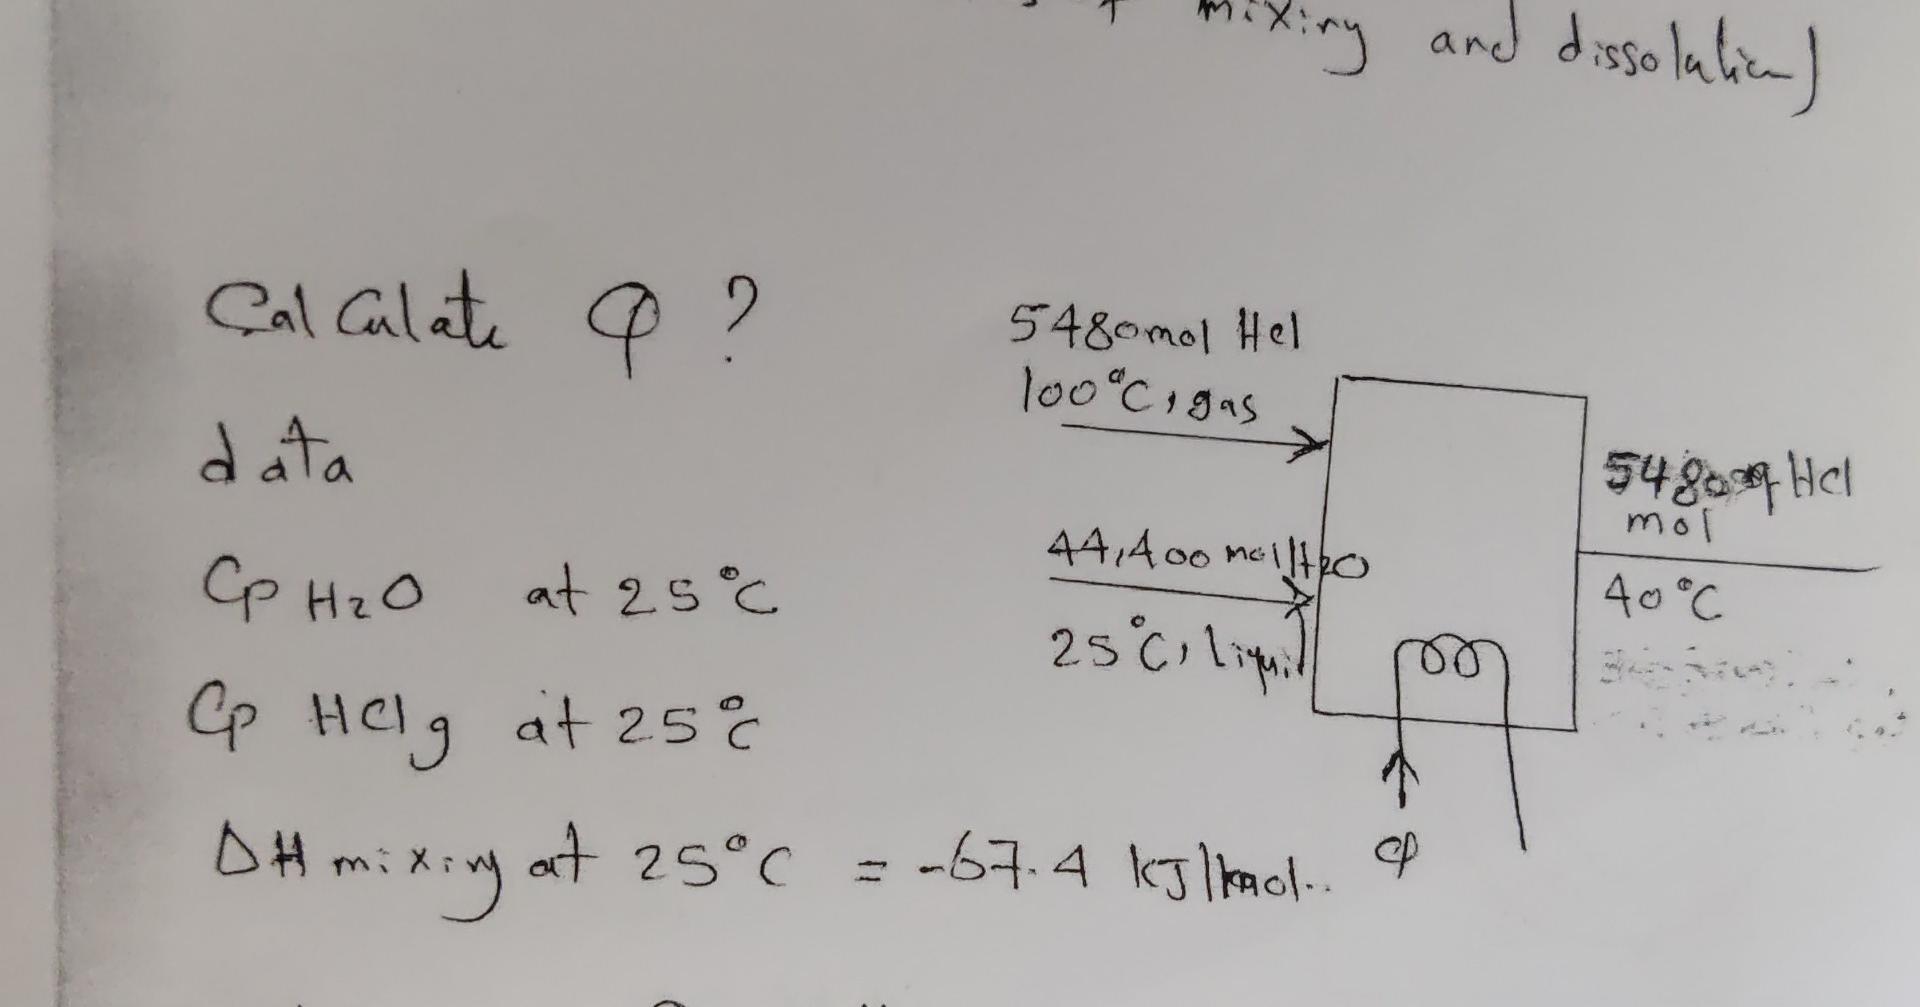 mixing and dissolution)
Calculate Q ?
data
Cp H2O at 25°C
Cp HClg at 25°C
ΔH mixing at 25°C = -67.4 kJ/kmol..
5480mol Hcl
100°C, gas
44,400 mol H2O
25°C, liquid
5480 HCl
mol
40°C
Q